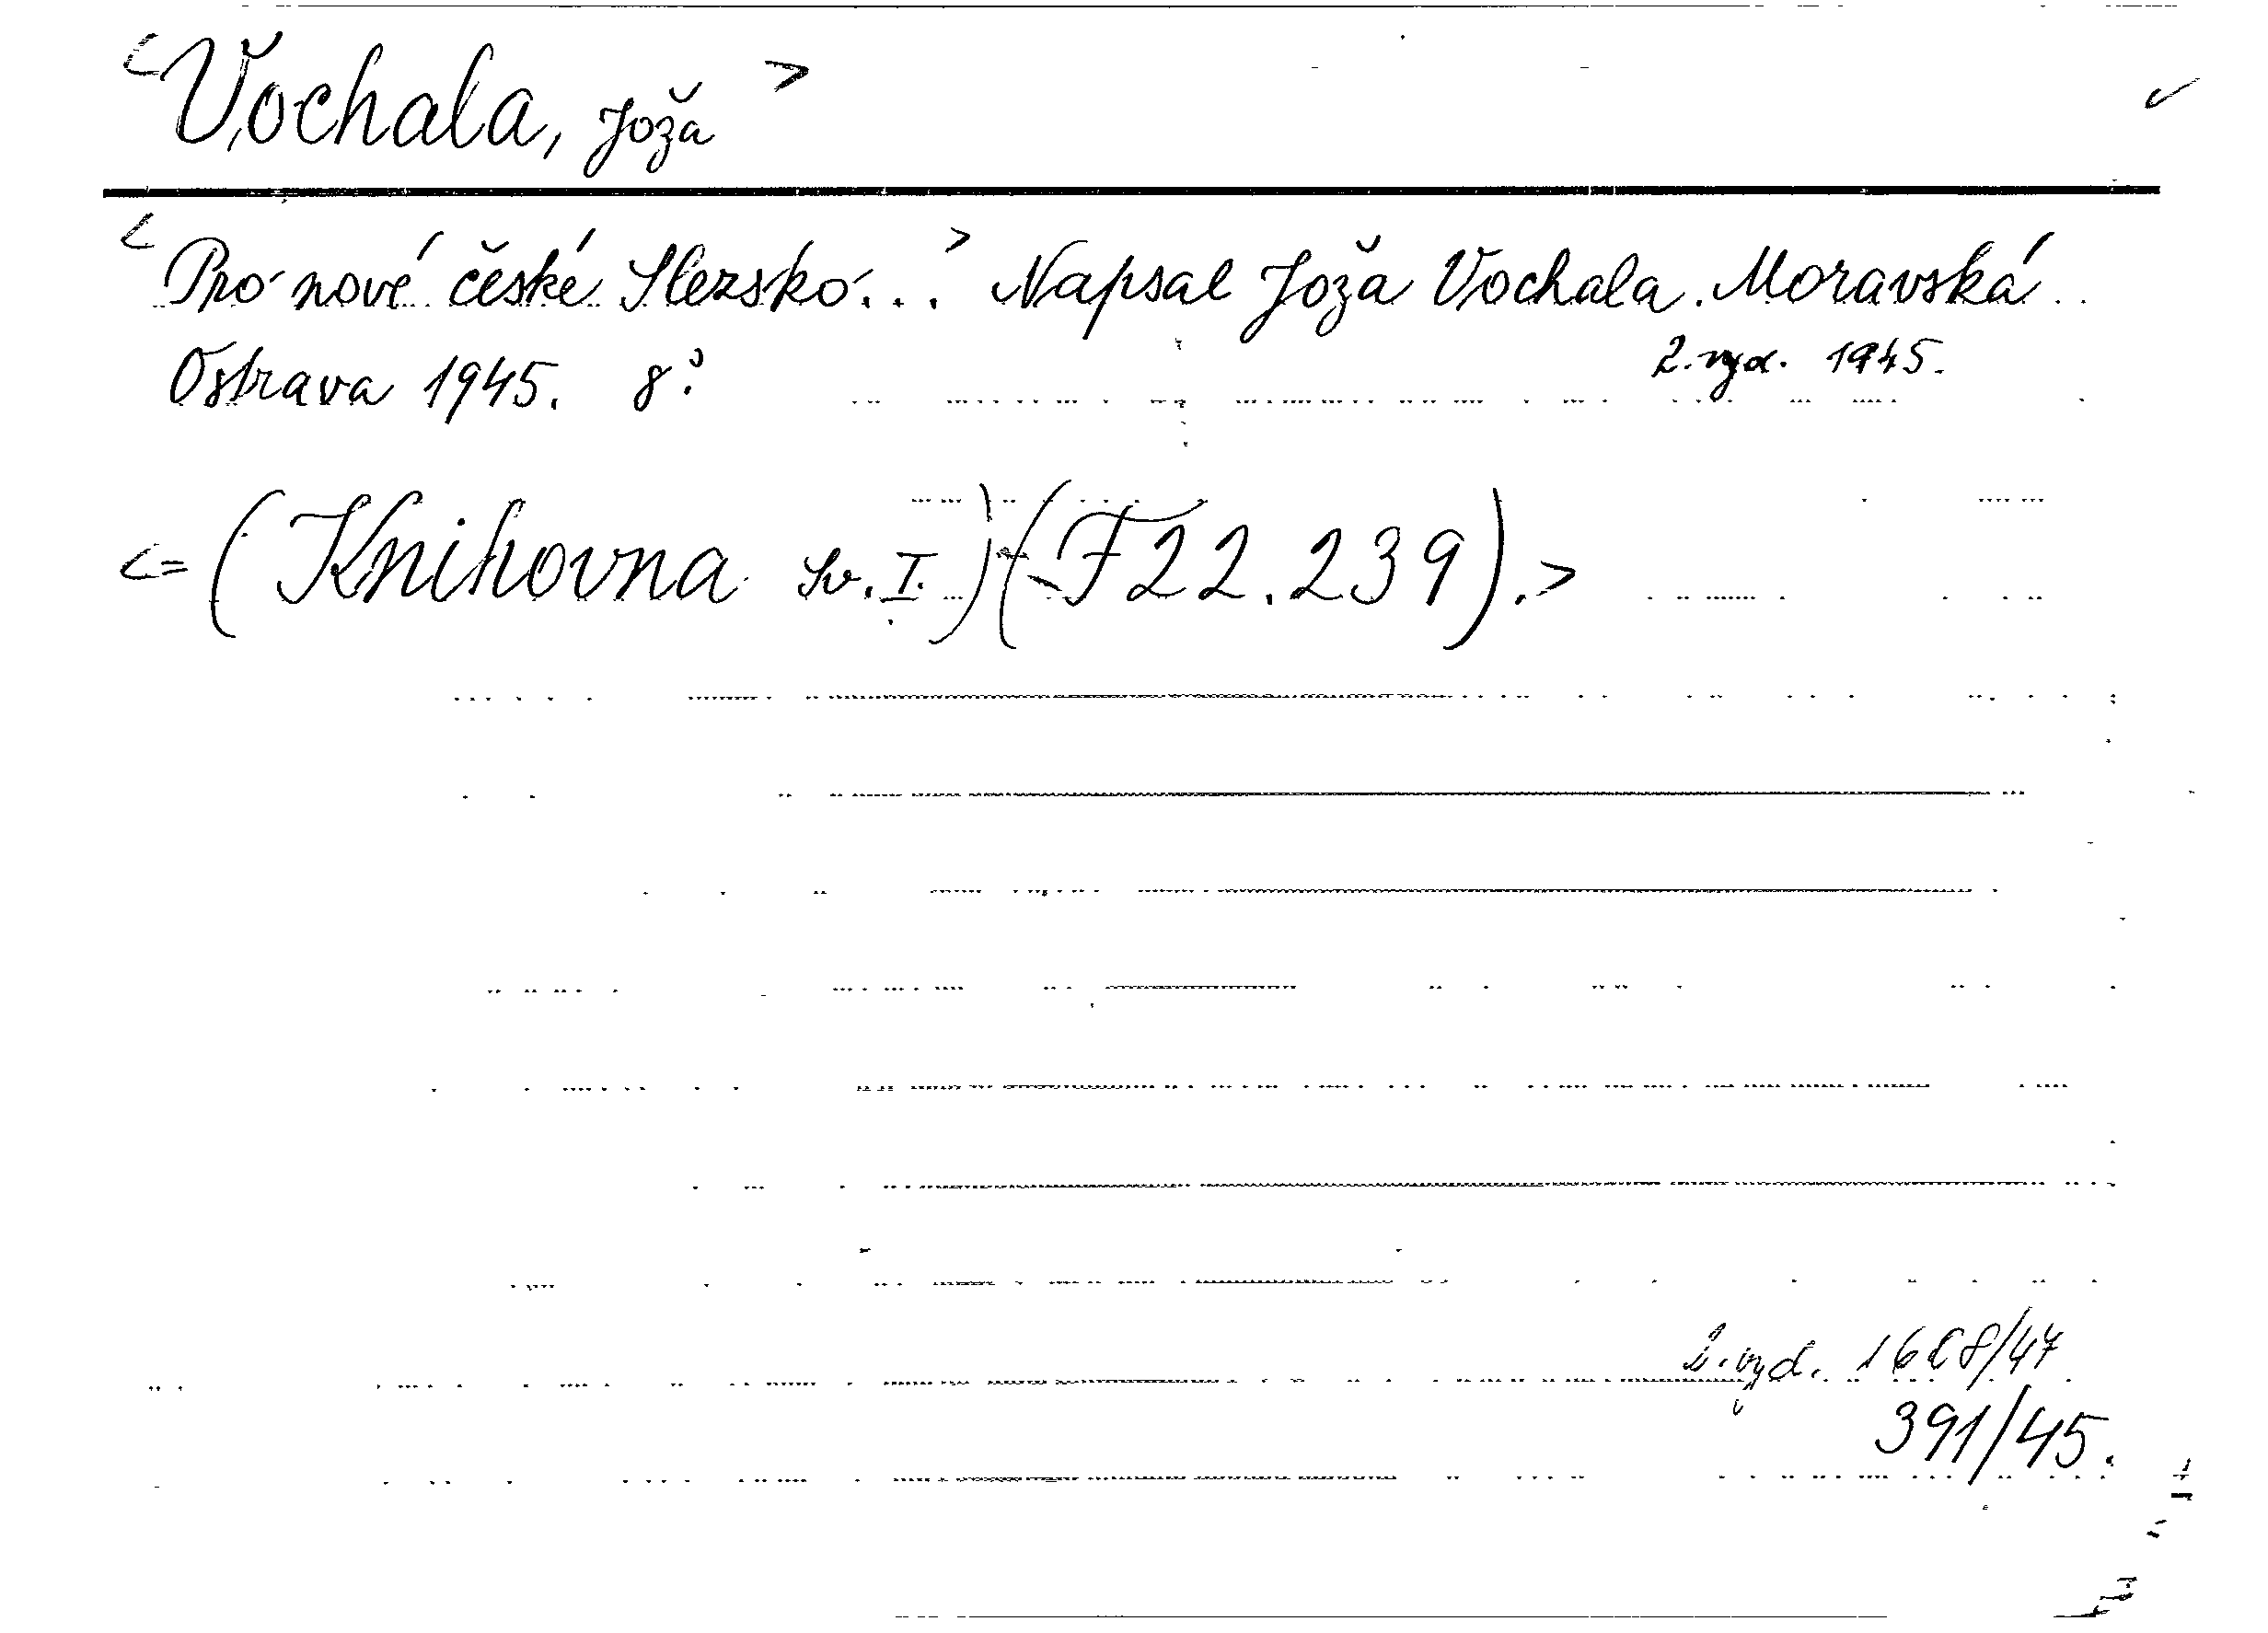 <Vochala, Joža>
<Pro nové české Slezsko...> Napsal Joža Vochala. Moravská
Ostrava 1945. 8°.
2. vyd. 1945.
<=(Knihovna sv. I.)(F22.239).>
2. vyd. 1688/47
391/45.